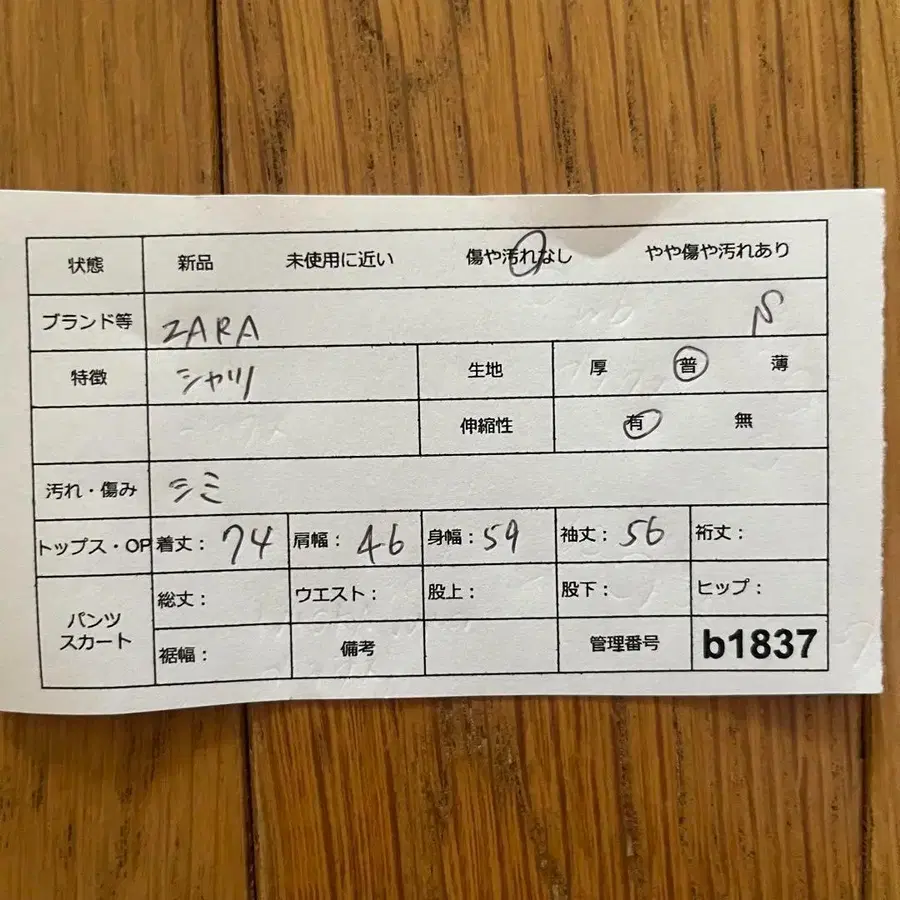 状態 新品 未使用に近い 傷や汚れなし やや傷や汚れあり
ブランド等 ZARA S
特徴 シャツ 生地 厚 普 薄
伸縮性 有 無
汚れ・傷み シミ
トップス・OP 着丈： 74 肩幅： 46 身幅： 59 袖丈： 56 裄丈：
パンツ スカート 総丈： ウエスト： 股上： 股下： ヒップ：
裾幅： 備考 管理番号 b1837